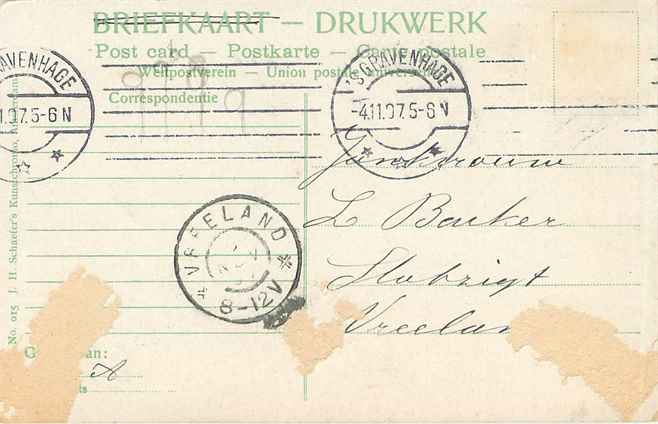 BRIEFKAART — DRUKWERK
Post card — Postkarte — Carte postale
Weltpostverein — Union postale universelle
Correspondentie
'SGRAVENHAGE
-4.11.07.5-6N
GRAVENHAGE
1.07.5-6N
VREELAND
8-12V
L Bakker
Vreelan
No. 015 J. H. Schaefer's Kunstchromo, Amsterdam
an:
A
ts